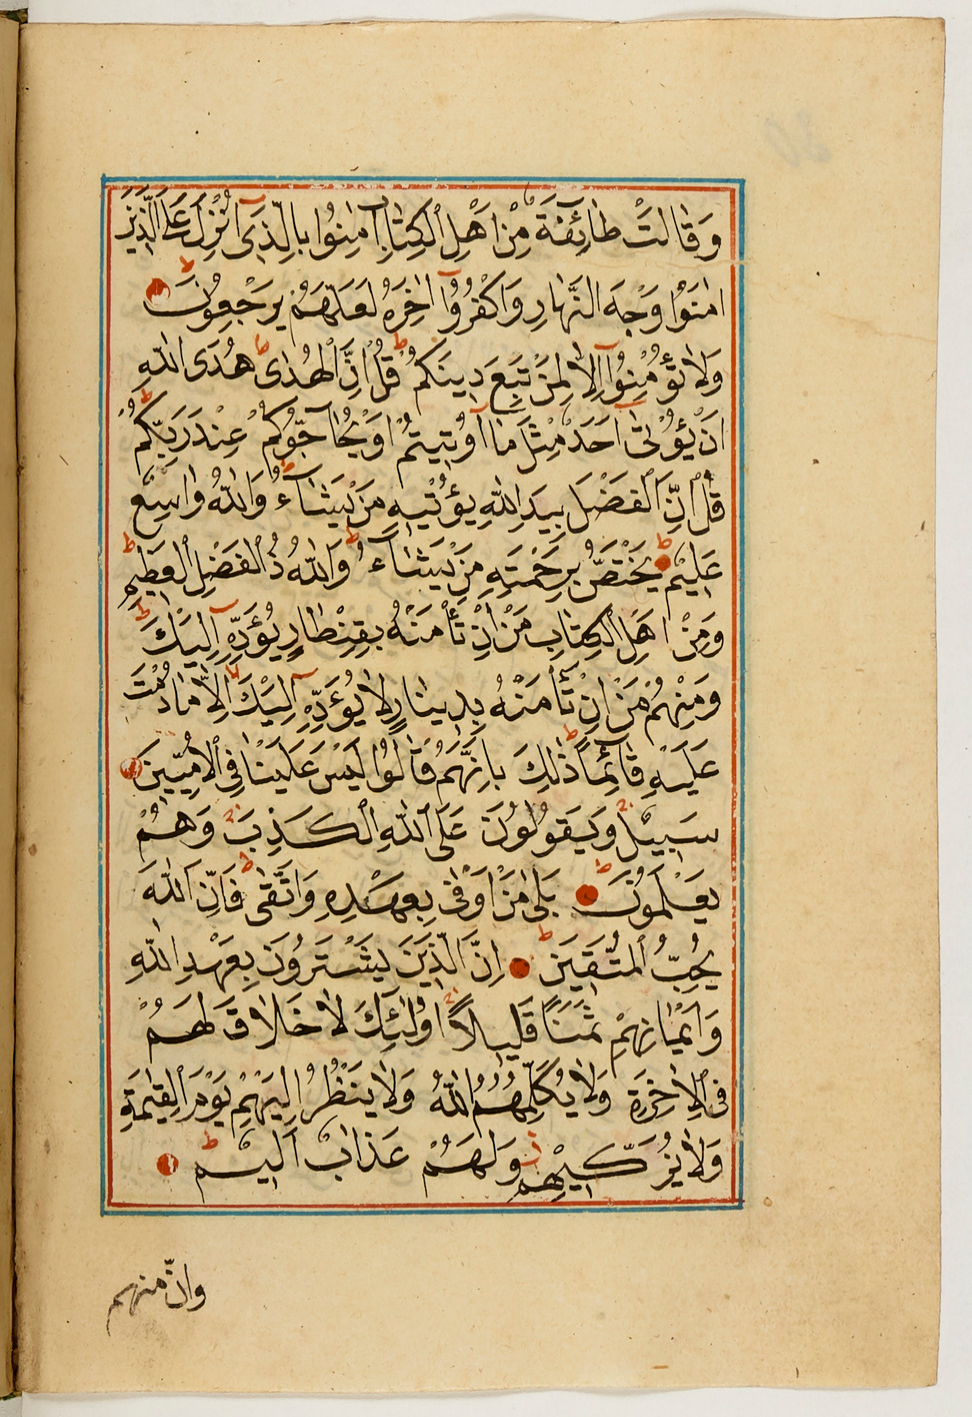 وَقَالَتْ طَائِفَةٌ مِنْ اَهْلِ الْكِتَابِ آمِنُوا بِالَّذِى اُنْزِلَ عَلَى الَّذِينَ
اٰمَنُوا وَجْهَ النَّهَارِ وَاكْفُرُوا اٰخِرَهُ لَعَلَّهُمْ يَرْجِعُونَ
وَلَا تُؤْمِنُوا اِلَّا لِمَنْ تَبِعَ دِينَكُمْ قُلْ اِنَّ الْهُدٰى هُدَى اللّٰهِ
اَنْ يُؤْتٰى اَحَدٌ مِثْلَ مَا اُوتِيتُمْ اَوْ يُحَاجُّوكُمْ عِنْدَ رَبِّكُمْ
قُلْ اِنَّ الْفَضْلَ بِيَدِ اللّٰهِ يُؤْتِيهِ مَنْ يَشَاءُ وَاللّٰهُ وَاسِعٌ
عَلِيمٌ يَخْتَصُّ بِرَحْمَتِهِ مَنْ يَشَاءُ وَاللّٰهُ ذُو الْفَضْلِ الْعَظِيمِ
وَمِنْ اَهْلِ الْكِتَابِ مَنْ اِنْ تَأْمَنْهُ بِقِنْطَارٍ يُؤَدِّهِ اِلَيْكَ
وَمِنْهُمْ مَنْ اِنْ تَأْمَنْهُ بِدِينَارٍ لَا يُؤَدِّهِ اِلَيْكَ اِلَّا مَا دُمْتَ
عَلَيْهِ قَائِمًا ذٰلِكَ بِاَنَّهُمْ قَالُوا لَيْسَ عَلَيْنَا فِى الْاُمِّيِّينَ
سَبِيلٌ وَيَقُولُونَ عَلَى اللّٰهِ الْكَذِبَ وَهُمْ
يَعْلَمُونَ بَلٰى مَنْ اَوْفٰى بِعَهْدِهِ وَاتَّقٰى فَاِنَّ اللّٰهَ
يُحِبُّ الْمُتَّقِينَ اِنَّ الَّذِينَ يَشْتَرُونَ بِعَهْدِ اللّٰهِ
وَاَيْمَانِهِمْ ثَمَنًا قَلِيلًا اُولٰئِكَ لَا خَلَاقَ لَهُمْ
فِى الْاٰخِرَةِ وَلَا يُكَلِّمُهُمُ اللّٰهُ وَلَا يَنْظُرُ اِلَيْهِمْ يَوْمَ الْقِيٰمَةِ
وَلَا يُزَكِّيهِمْ وَلَهُمْ عَذَابٌ اَلِيمٌ
وانّ منهم